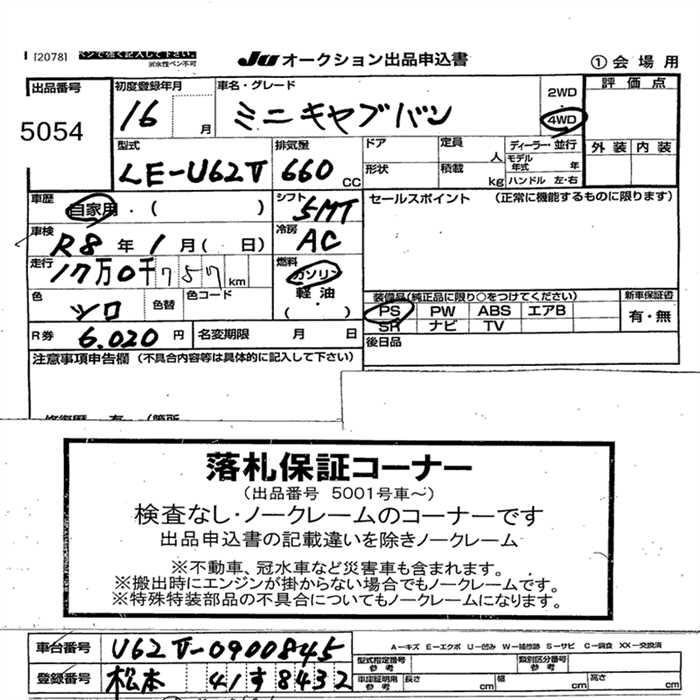 [2078] ペンで強く記入して下さい。 JU オークション出品申込書 ①会場用
水性ペン不可
出品番号 5054
初度登録年月 16 月
車名・グレード ミニキャブバン
2WD
4WD
評価点
外装 内装
型式 LE-U62V
排気量 660 CC
ドア
定員 人
ディーラー・並行
形状
積載 kg
モデル年式 年
ハンドル 左・右
車歴 自家用・( )
シフト 5MT
セールスポイント (正常に機能するものに限ります)
車検 R8年1月( 日)
冷房 AC
走行 17万0千757km
燃料 ガソリン
軽油
( )
色 シロ 色替 色コード
装備品(純正品に限り○をつけてください) 新車保証書
PS PW ABS エアB 有・無
SR ナビ TV
R券 6,020円 名変期限 月 日
後日品
注意事項申告欄 (不具合内容等は具体的に記入して下さい)
落札保証コーナー
(出品番号 5001号車~)
検査なし・ノークレームのコーナーです
出品申込書の記載違いを除きノークレーム
※不動車、冠水車など災害車も含まれます。
※搬出時にエンジンが掛からない場合でもノークレームです。
※特殊特装部品の不具合についてもノークレームになります。
A-キズ E-エクボ U-凹み W-補修跡 S-サビ C-腐食 XX-交換済
車台番号 U62V-0900845
型式指定番号 参考 類別区分番号 参考
登録番号 松本 41す8432
車庫証明用 参考 長さ cm 幅 cm 高さ cm